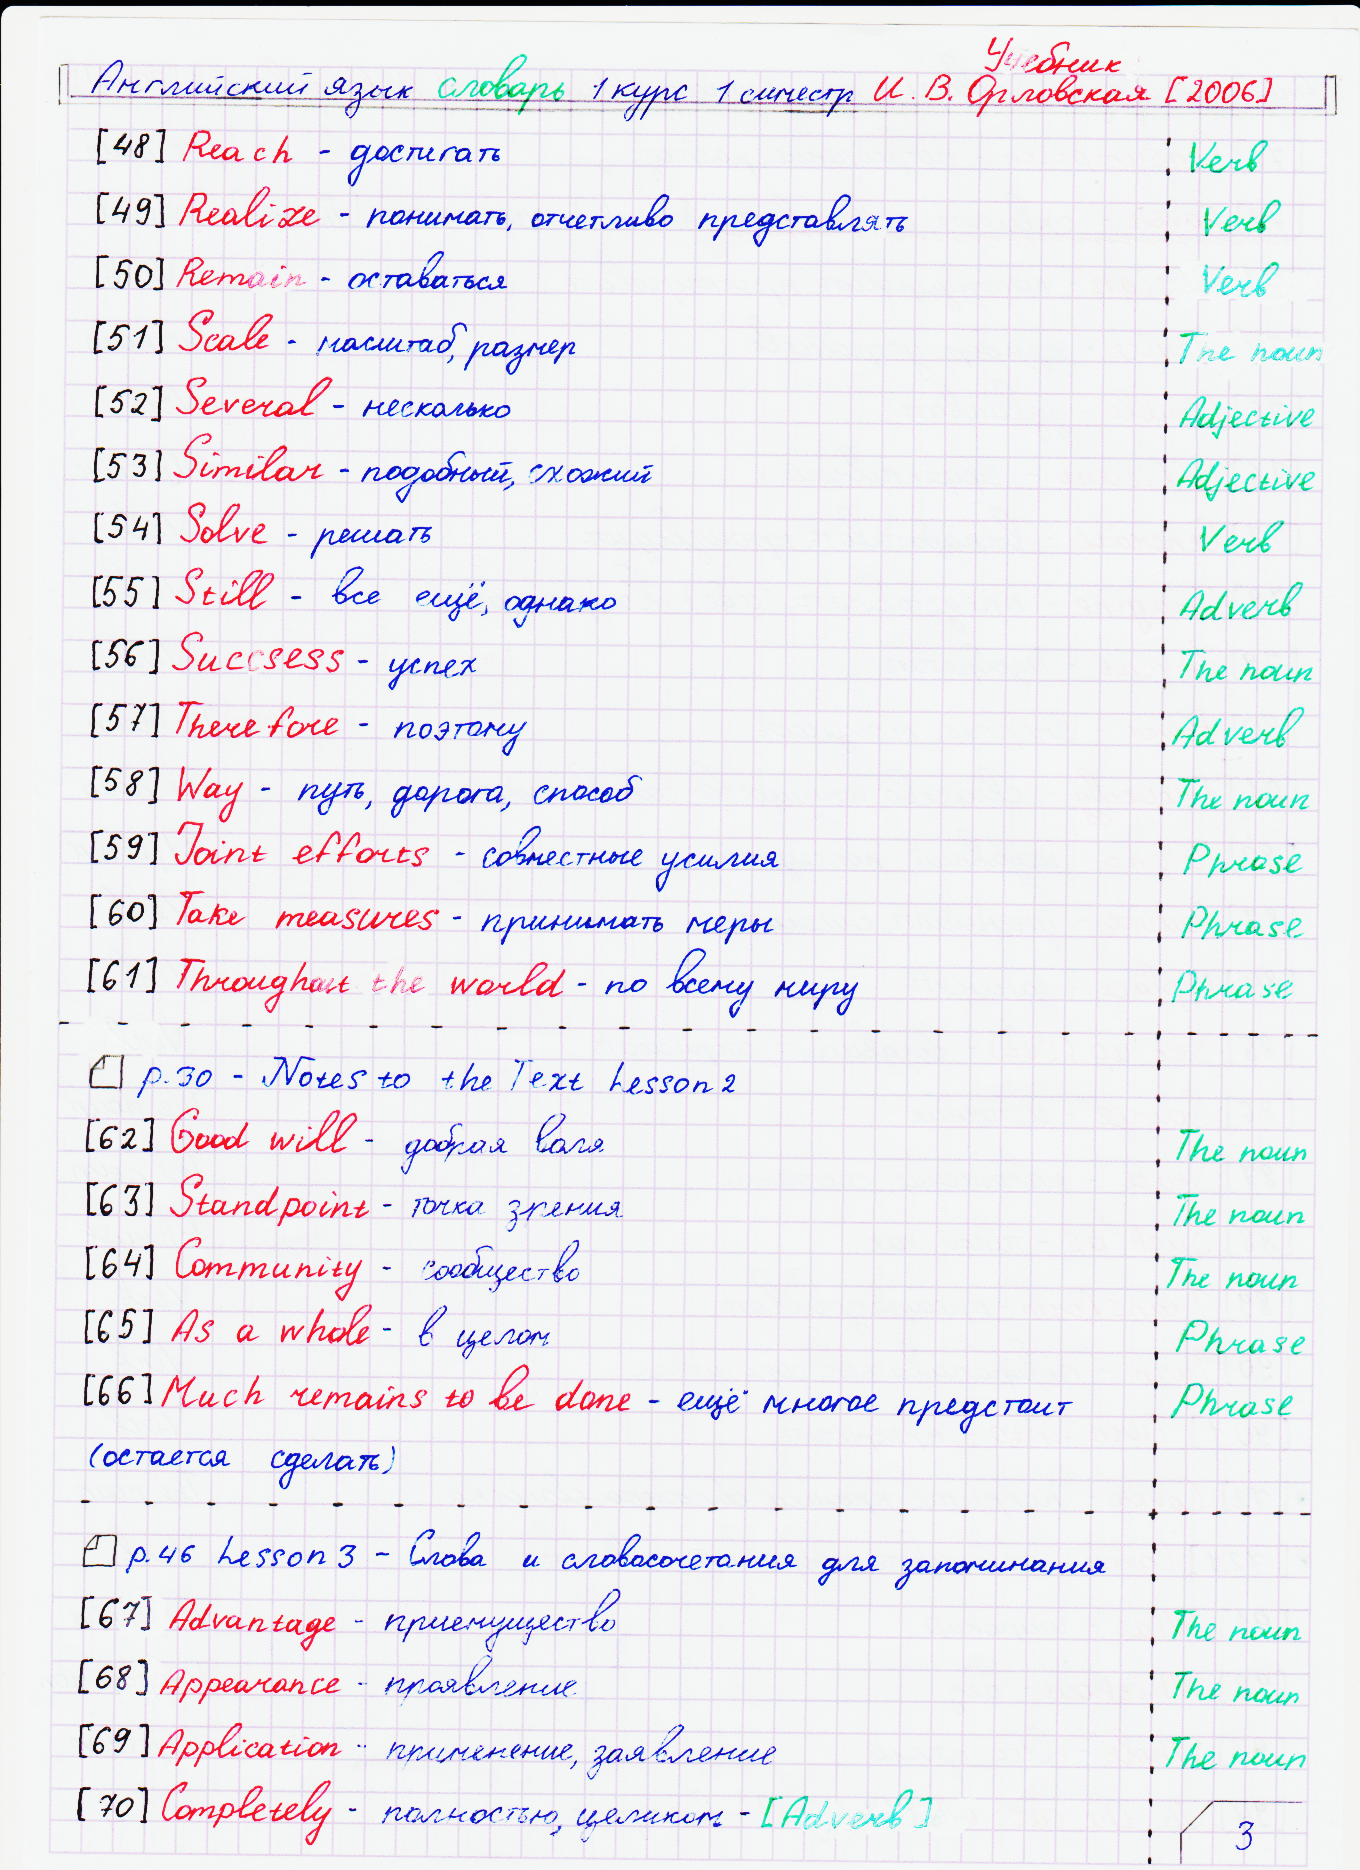 Учебник
Английский язык словарь 1 курс 1 симестр И. В. Орловская [2006]
[48] Reach - достигать Verb
[49] Realize - понимать, отчетливо представлять Verb
[50] Remain - оставаться Verb
[51] Scale - масштаб, размер The noun
[52] Several - несколько Adjective
[53] Similar - подобный, схожий Adjective
[54] Solve - решать Verb
[55] Still - все ещё, однако Adverb
[56] Succsess - успех The noun
[57] Therefore - поэтому Adverb
[58] Way - путь, дорога, способ The noun
[59] Joint efforts - совместные усилия Phrase
[60] Take measures - принимать меры Phrase
[61] Throughout the world - по всему миру Phrase
p.30 - Notes to the Text Lesson 2
[62] Good will - добрая воля The noun
[63] Standpoint - точка зрения The noun
[64] Community - сообщество The noun
[65] As a whole - в целом Phrase
[66] Much remains to be done - ещё многое предстоит Phrase
(остается сделать)
p.46 Lesson 3 - Слова и словосочетания для запоминания
[67] Advantage - приемущество The noun
[68] Appearance - проявление The noun
[69] Application - применение, заявление The noun
[70] Completely - полностью, целиком - [Adverb]
3